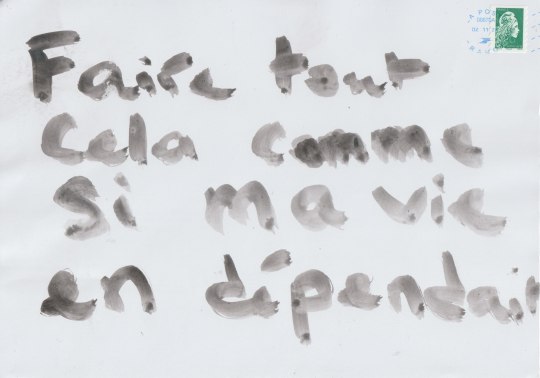 Faire tout
cela comme
si ma vie
en dépendai